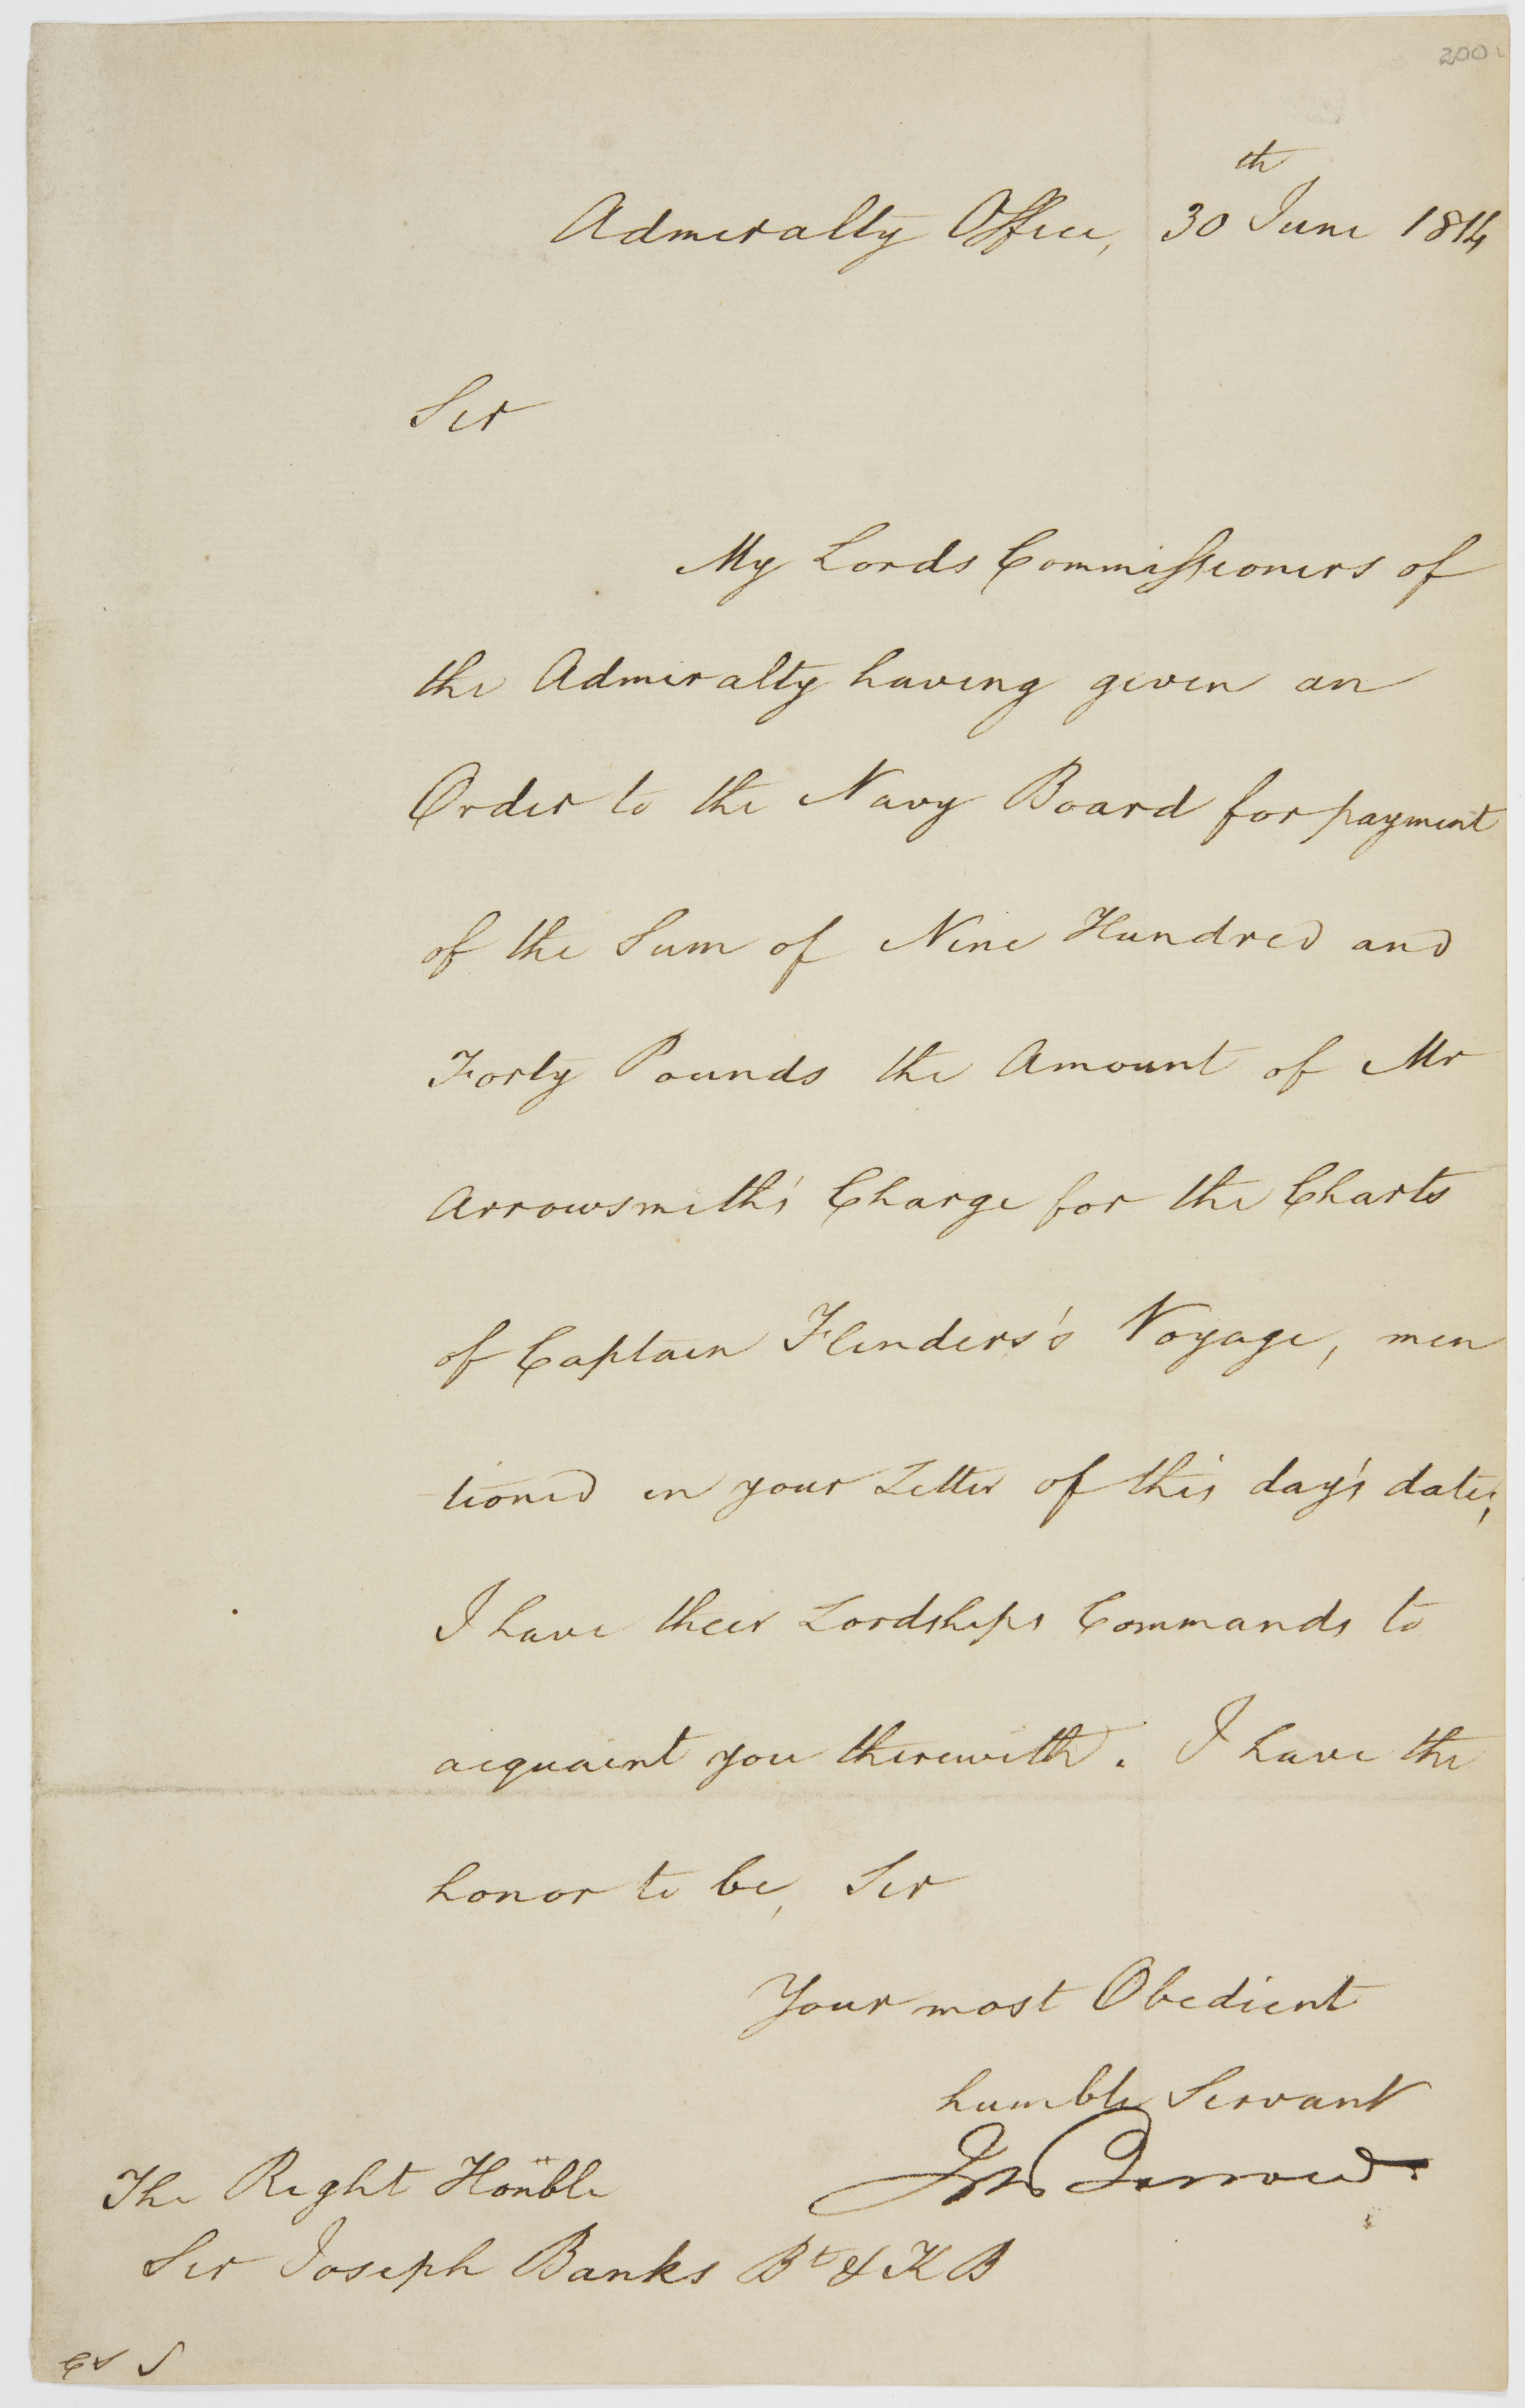 200
Admiralty Office, 30th June 1814
Sir
My Lords Commissioners of
the Admiralty having given an
Order to the Navy Board for payment
of the Sum of Nine Hundred and
Forty Pounds the Amount of Mr
Arrowsmith's Charge for the Charts
of Captain Flinders's Voyage, men
tioned in your Letter of this day's date,
I have their Lordships Commands to
acquaint you therewith. I have the
honor to be, Sir
Your most Obedient
humble Servant
Jno Barrow.
The Right Honble
Sir Joseph Banks Bt & K B